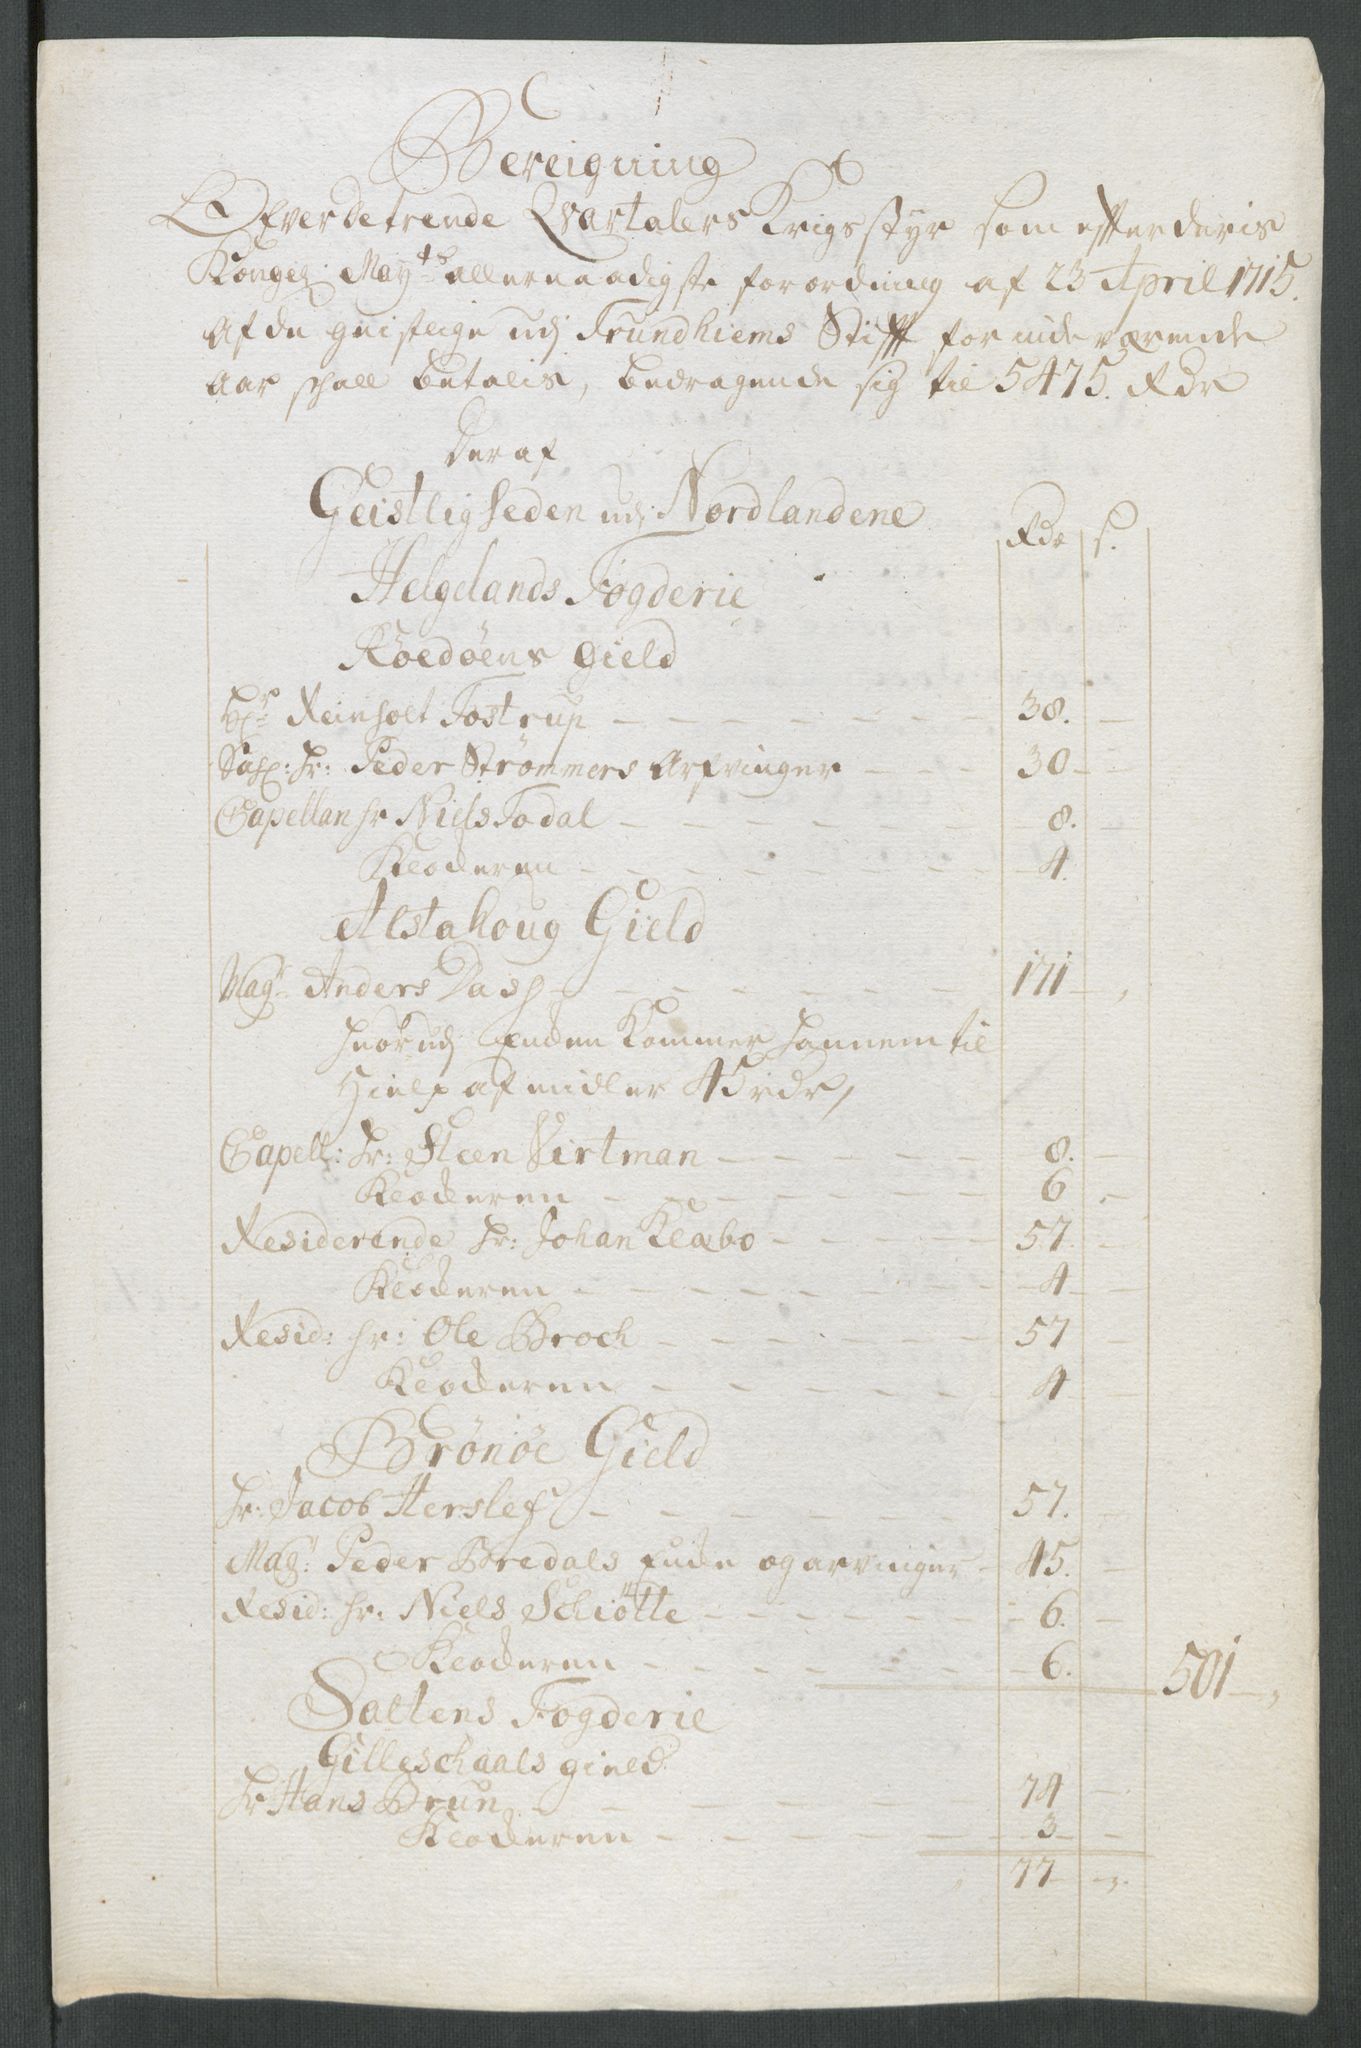 Bereigning
Ofver de trende Qvartalers Krigsstyr som effter deris
Kongel: May.ts allernaadigste forordning af 23 April 1715.
af de geistlige udj Trundhiems Stifft for indeværende
aar schall betalis, bedragende sig til 5475. Rdr
Deraf
Geistligheden udj Nordlandene
Rdr s.
Helgelands Fogderie
Röedöens gield
Hr Reinholt Tostrup - - - 38. -
Sahl: Hr: Peder Strömmers Arfvinger - - - 30 -
Capellan Hr Niels Todal - - - 8. -
Klocheren - - - 4.
Alstahoug Gield
Magr Anders Dass - - - 171 -
hvorudj Enden Kommer hannem til
Hielp af midler 45 rdr,
Capell: Hr: Steen Virtman - - - 8. -
Klocheren - - - 6 -
Residerende Hr: Johan Klæbo - - - 57. -
Klocheren - - - 4 -
Resid: Hr: Ole Broch - - - 57 -
Klocheren - - - 4 -
Brönöe Gield
Hr: Jacob Herslef - - - 57. -
Magr: Peder Bredals Enche og arvinger - 45. -
Resid: Hr: Niels Schiötte - - - 6. -
Klocheren - - - 6. 501 -
Saltens Fogderie
Gilleschaals gield
Hr Hans Brun - - - 74 -
Klocheren - - - 3 -
77 -